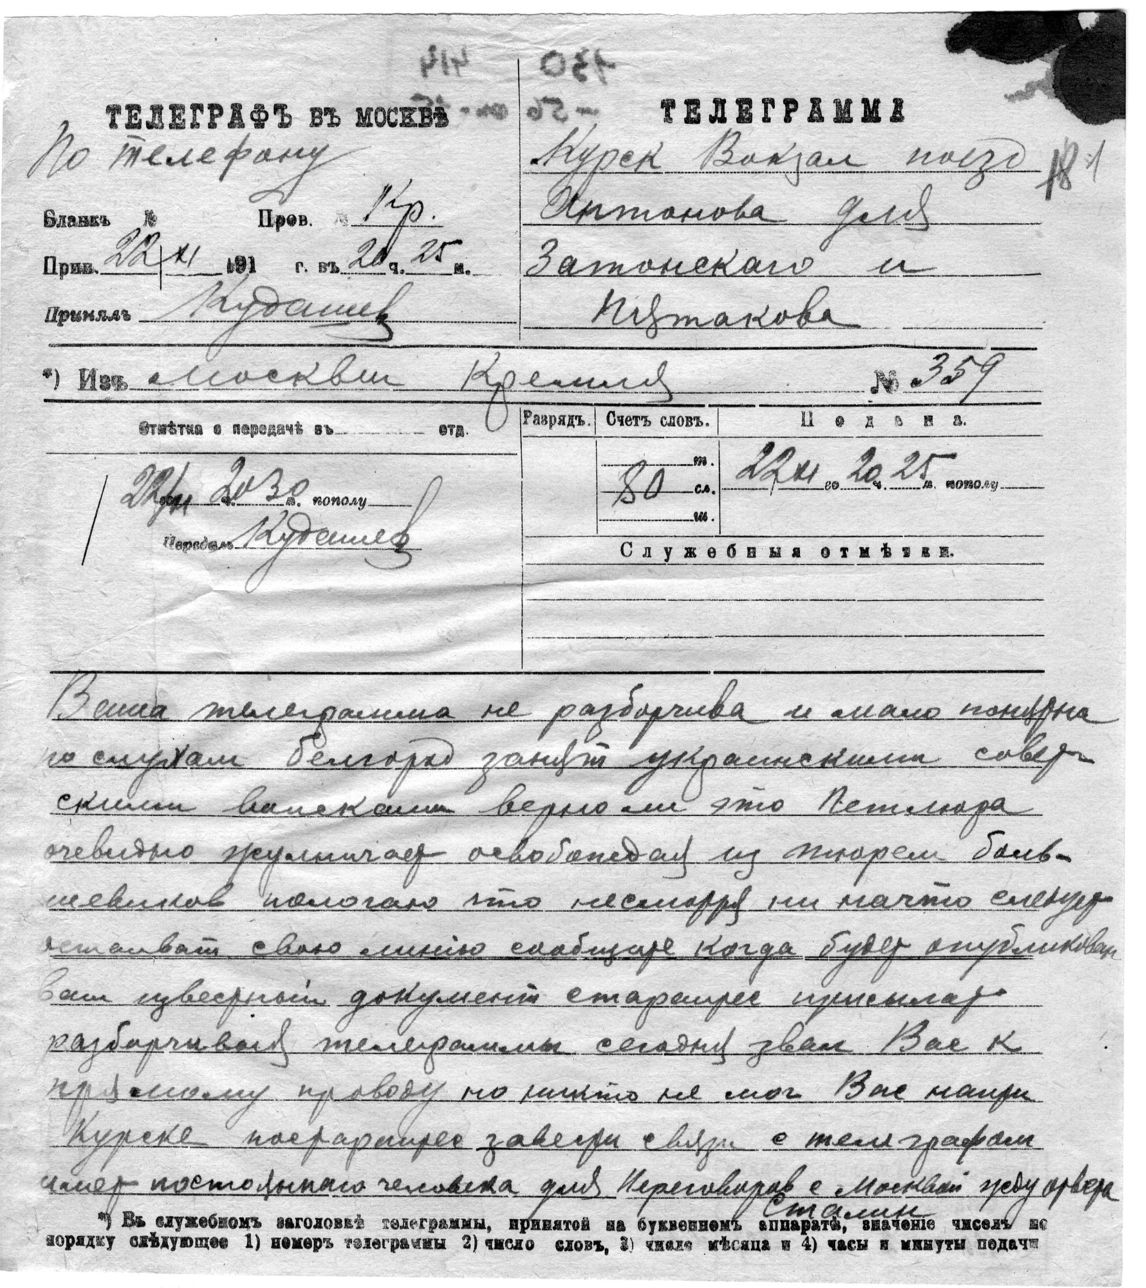 130 414
ТЕЛЕГРАФЪ ВЪ МОСКВѢ
ТЕЛЕГРАММА
По телефону
Курск Вокзал поезд
18
Бланкъ №
Пров. № Кр.
Антонова для
Прин. 22/XI 191 г. въ 20 ч. 25 м.
Затонскаго и
Принялъ Кудашев
Пятакова
*) Изъ Москвы Кремля № 359
Отмѣтка о передачѣ въ отд.
Разрядъ.
Счетъ словъ.
Подана.
22/XI 20 ч. 30 м. пополу
80 сл.
22 XI го 20 ч. 25 м. пополу
Передалъ Кудашев
Служебныя отмѣтки.
Ваша телеграмма не разборчива и мало понятна
по слухам белгород занят украинскими совет-
скими войсками верно ли это Петлюра
очевидно жульничает освобождая из тюрем боль-
шевиков пологаю что несмотря ни начто следует
отаиват свою линию сообщите когда будет опубликован
вам известный документ старайтес присылат
разборчивыя телеграммы сегодня звал Вас к
прямому проводу но никто не мог Вас найти
Курске постарайтес завести связи с телеграфом
имет постояннаго человека для Переговоров с Москвой жду ответа
Сталин
*) Въ служебномъ заголовкѣ телеграммы, принятой на буквенномъ аппаратѣ, значеніе чиселъ по
порядку слѣдующее 1) номеръ телеграммы 2) число словъ, 3) число мѣсяца и 4) часы и минуты подачи